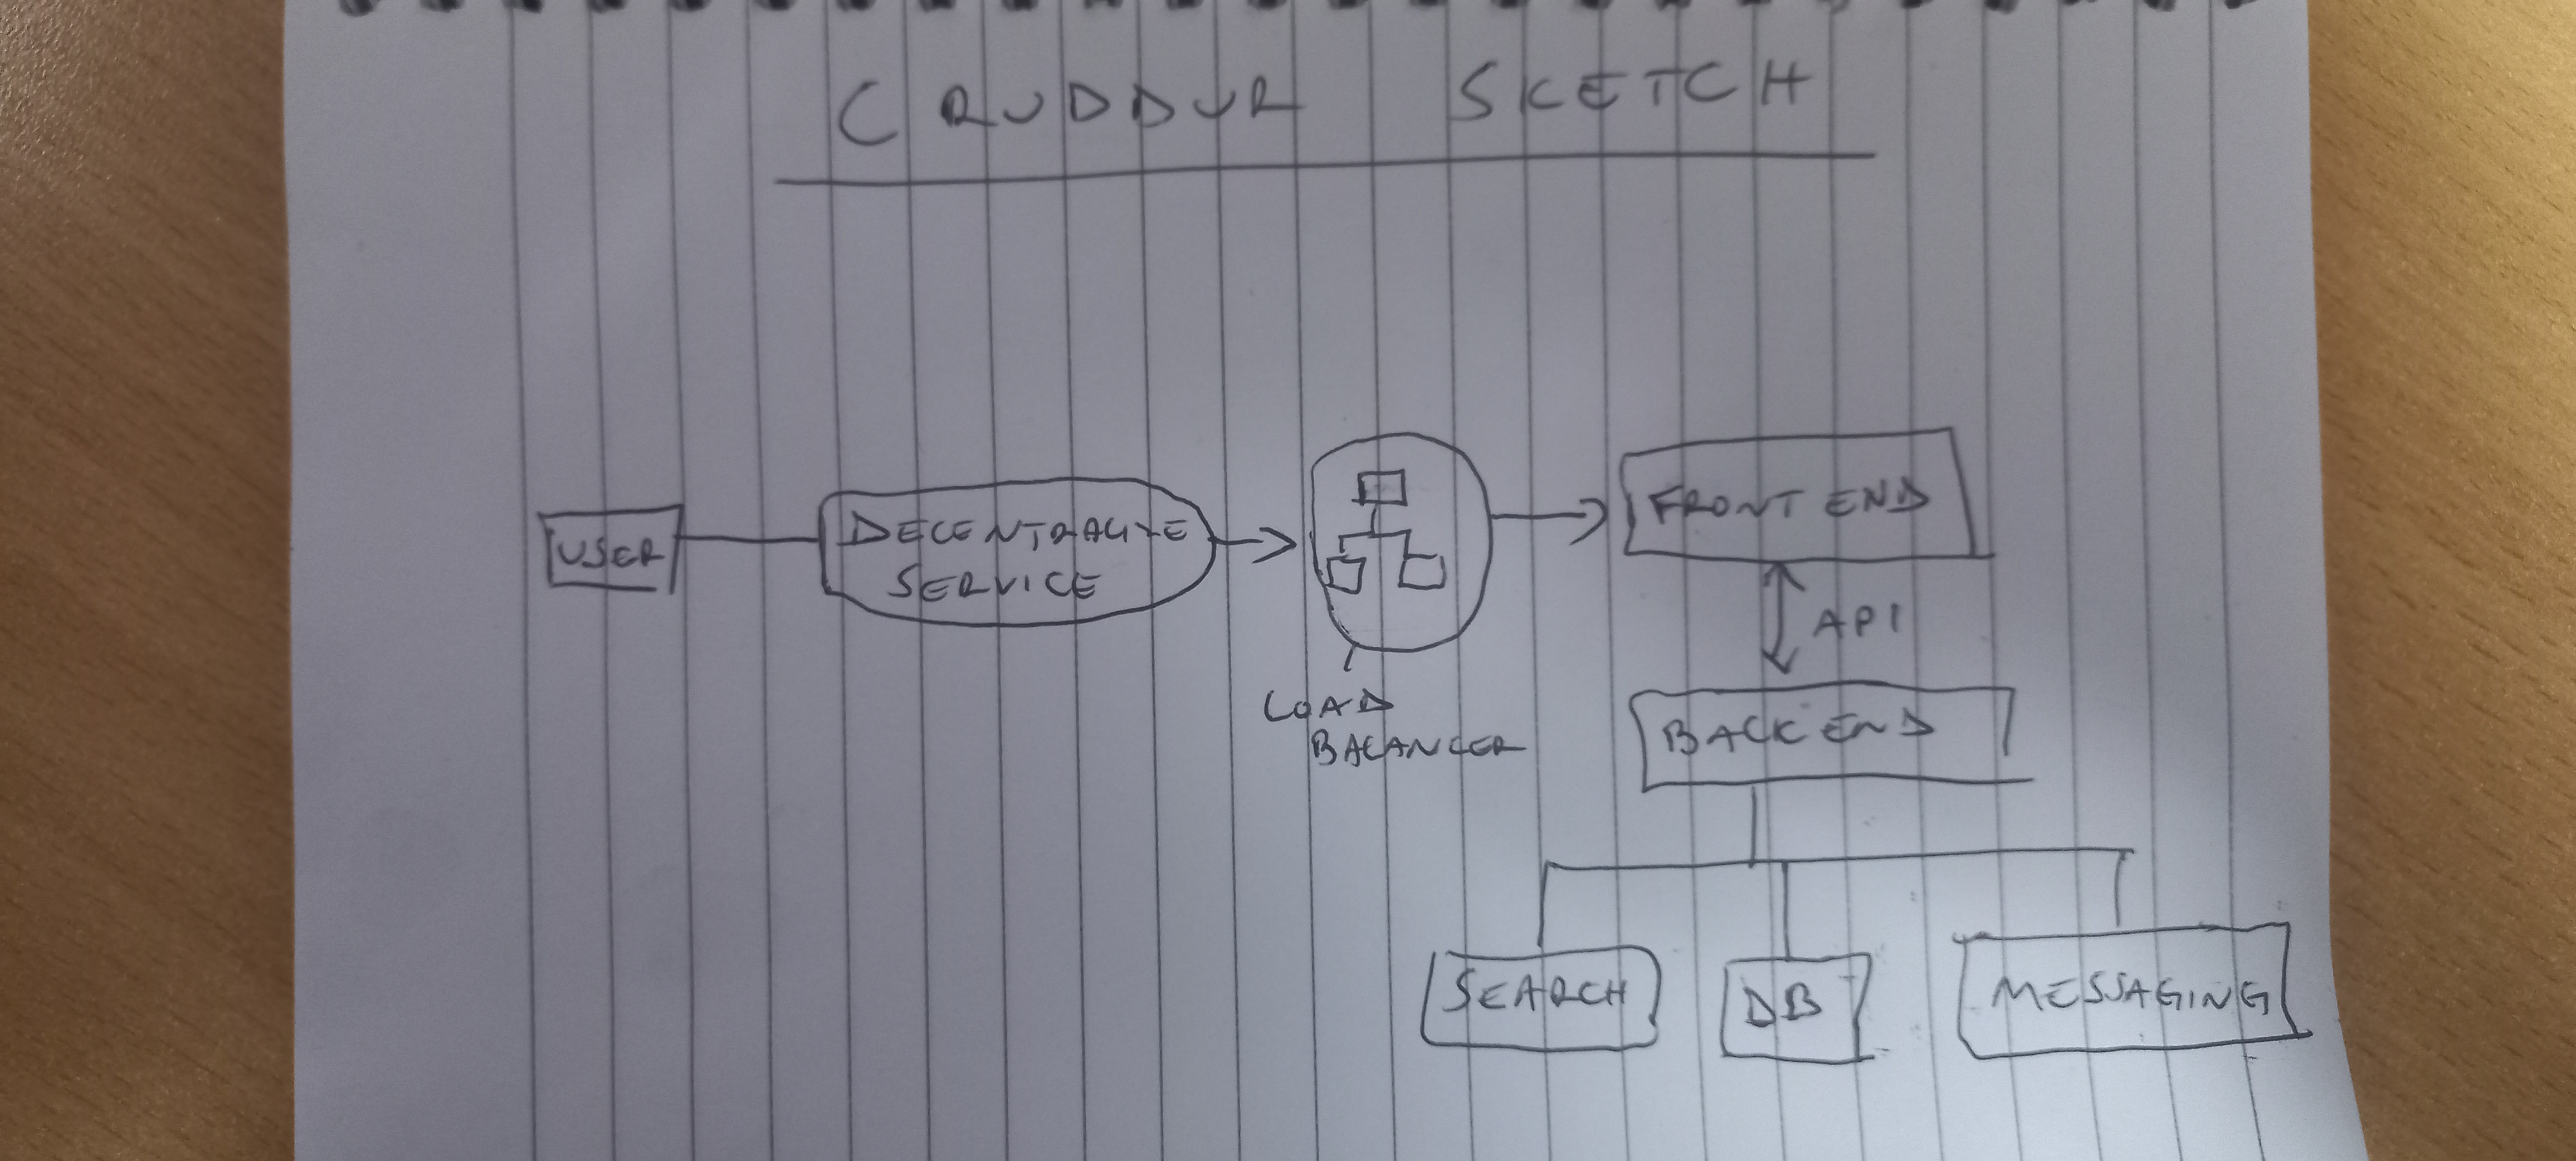 CRUDDUR SKETCH
USER
DECENTRALIZE
SERVICE
LOAD
BALANCER
FRONT END
API
BACKEND
SEARCH
DB
MESSAGING